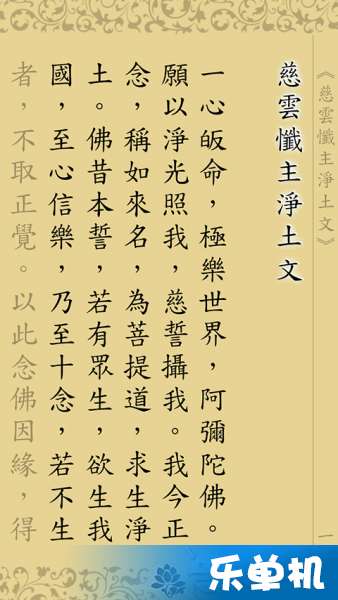 《慈雲懺主淨土文》
一
慈雲懺主淨土文
一心皈命，極樂世界，阿彌陀佛。
願以淨光照我，慈誓攝我。我今正
念，稱如來名，為菩提道，求生淨
土。佛昔本誓，若有眾生，欲生我
國，至心信樂，乃至十念，若不生
者，不取正覺。以此念佛因緣，得
乐单机